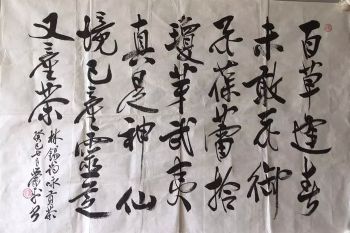 百草逢春
未敢花御
茶蓓蕾拾
瓊芽武夷
真是神仙
境已產靈芝
又產茶
林錫翁詠貢茶
癸巳